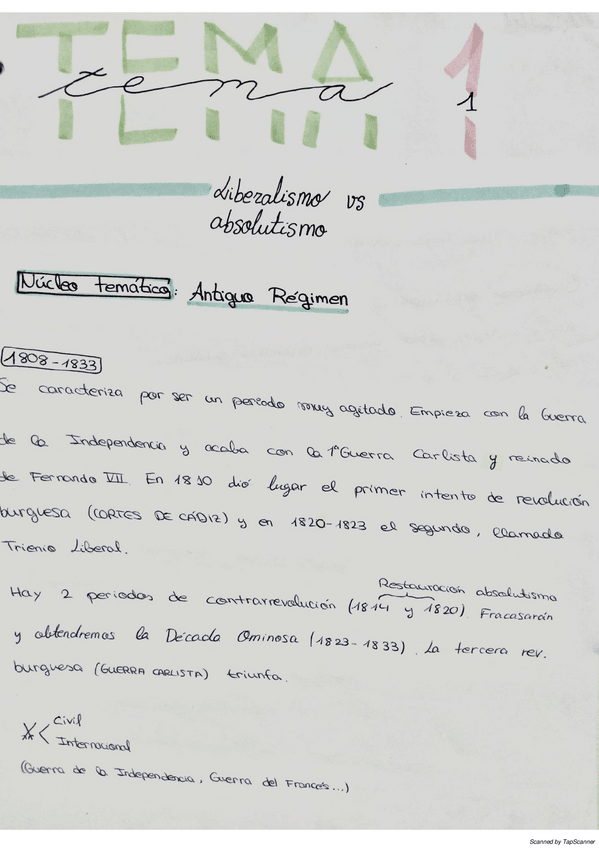 TEMA 1
tema 1
Liberalismo vs
absolutismo
Núcleo temático: Antiguo Régimen
1808-1833
Se caracteriza por ser un periodo muy agitado. Empieza con la Guerra
de la Independencia y acaba con la 1ª Guerra Carlista y reinado
de Fernando VII. En 1810 dió lugar el primer intento de revolución
burguesa (CORTES DE CÁDIZ) y en 1820-1823 el segundo, llamado
Trienio Liberal.
Restauración absolutismo
Hay 2 periodos de contrarrevolución (1814 y 1820). Fracasarán
y obtendremos la Década Ominosa (1823-1833). La tercera rev.
burguesa (GUERRA CARLISTA) triunfa.
Civil
Internacional
(Guerra de la Independencia, Guerra del Francés...)
Scanned by TapScanner